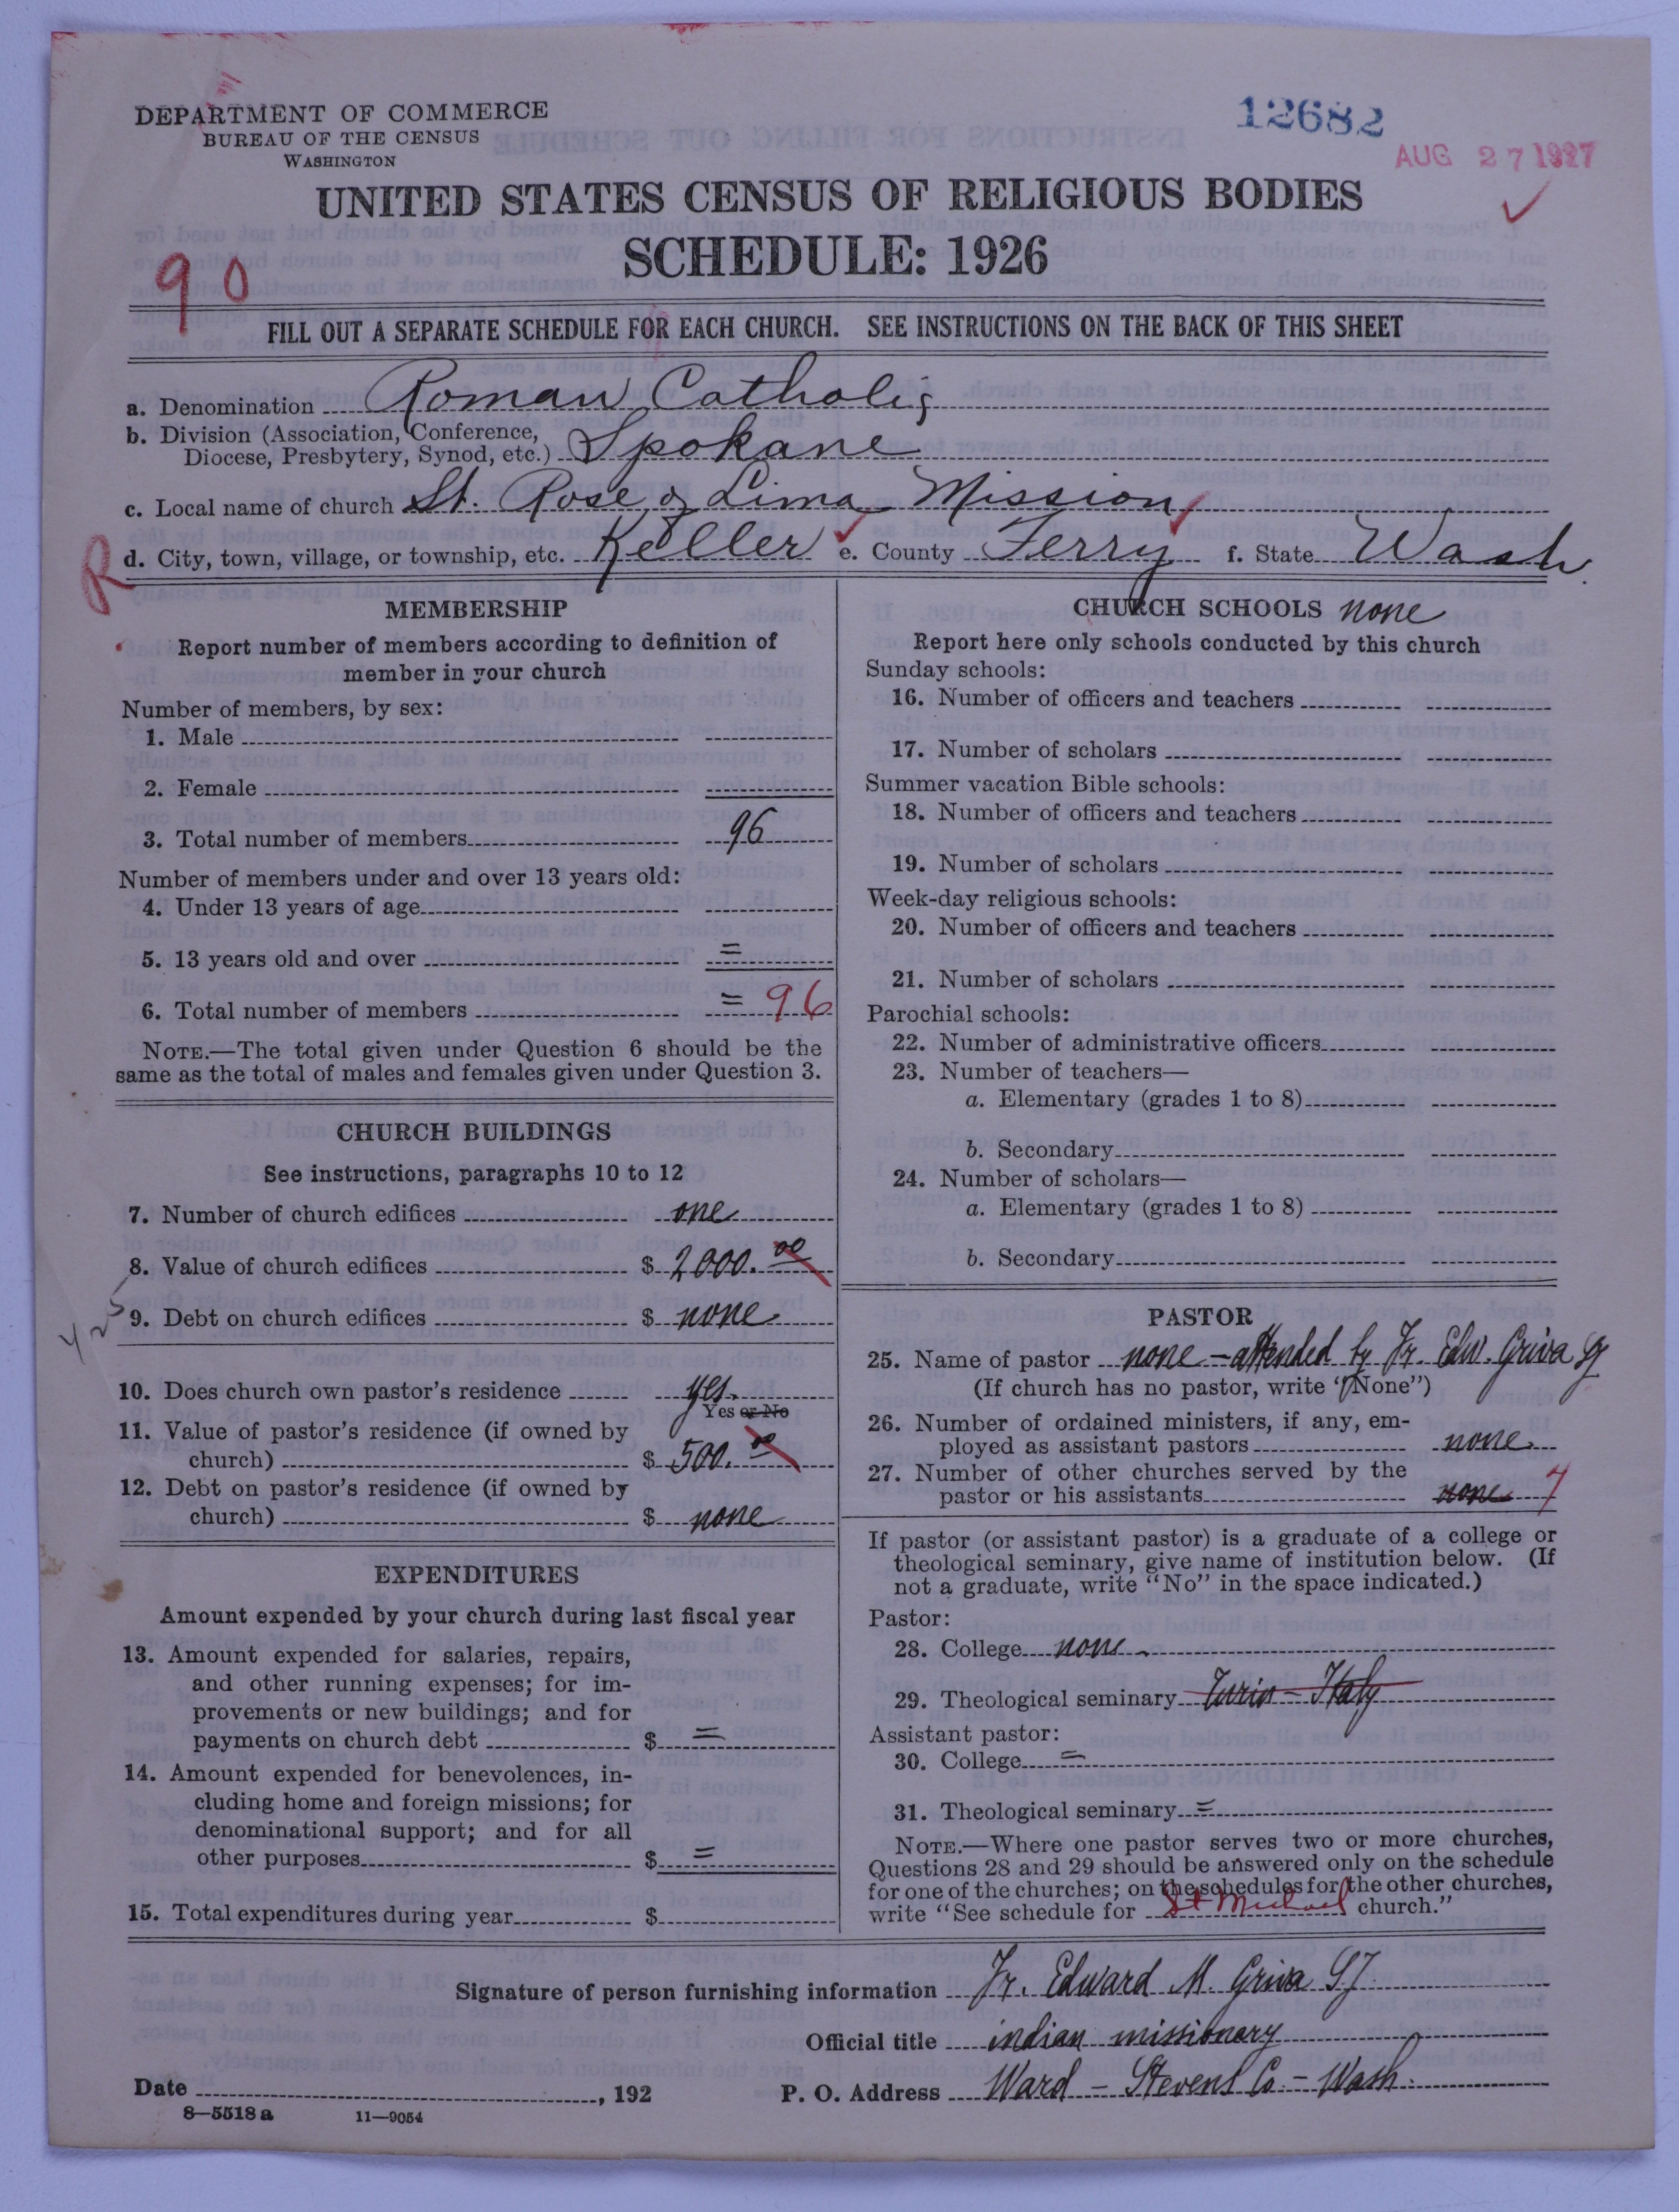 DEPARTMENT OF COMMERCE
BUREAU OF THE CENSUS
WASHINGTON
12682
AUG 27 1927
UNITED STATES CENSUS OF RELIGIOUS BODIES
SCHEDULE: 1926
90
FILL OUT A SEPARATE SCHEDULE FOR EACH CHURCH. SEE INSTRUCTIONS ON THE BACK OF THIS SHEET
a. Denomination Roman Catholic
b. Division (Association, Conference,
Diocese, Presbytery, Synod, etc.) Spokane
c. Local name of church St. Rose of Lima Mission
R d. City, town, village, or township, etc. Keller e. County Ferry f. State Wash.
MEMBERSHIP
Report number of members according to definition of
member in your church
Number of members, by sex:
1. Male
2. Female
3. Total number of members 96
Number of members under and over 13 years old:
4. Under 13 years of age
5. 13 years old and over =
6. Total number of members = 96
NOTE.—The total given under Question 6 should be the
same as the total of males and females given under Question 3.
CHURCH BUILDINGS
See instructions, paragraphs 10 to 12
7. Number of church edifices one
8. Value of church edifices $ 2000.00
425
9. Debt on church edifices $ none
10. Does church own pastor's residence yes.
Yes or No
11. Value of pastor's residence (if owned by
church) $ 500.00
12. Debt on pastor's residence (if owned by
church) $ none
EXPENDITURES
Amount expended by your church during last fiscal year
13. Amount expended for salaries, repairs,
and other running expenses; for im-
provements or new buildings; and for
payments on church debt $ =
14. Amount expended for benevolences, in-
cluding home and foreign missions; for
denominational support; and for all
other purposes $ =
15. Total expenditures during year $
CHURCH SCHOOLS none
Report here only schools conducted by this church
Sunday schools:
16. Number of officers and teachers
17. Number of scholars
Summer vacation Bible schools:
18. Number of officers and teachers
19. Number of scholars
Week-day religious schools:
20. Number of officers and teachers
21. Number of scholars
Parochial schools:
22. Number of administrative officers
23. Number of teachers—
a. Elementary (grades 1 to 8)
b. Secondary
24. Number of scholars—
a. Elementary (grades 1 to 8)
b. Secondary
PASTOR
25. Name of pastor none - attended by Fr. Edw. Griva SJ
(If church has no pastor, write "None")
26. Number of ordained ministers, if any, em-
ployed as assistant pastors none
27. Number of other churches served by the
pastor or his assistants none 7
If pastor (or assistant pastor) is a graduate of a college or
theological seminary, give name of institution below. (If
not a graduate, write "No" in the space indicated.)
Pastor:
28. College none
29. Theological seminary Turin - Italy
Assistant pastor:
30. College =
31. Theological seminary =
NOTE.—Where one pastor serves two or more churches,
Questions 28 and 29 should be answered only on the schedule
for one of the churches; on the schedules for the other churches,
write "See schedule for St Michael church."
Signature of person furnishing information Fr. Edward M. Griva SJ.
Official title indian missionary
Date , 192 P. O. Address Ward - Stevens Co - Wash.
8—5518 a 11—9054